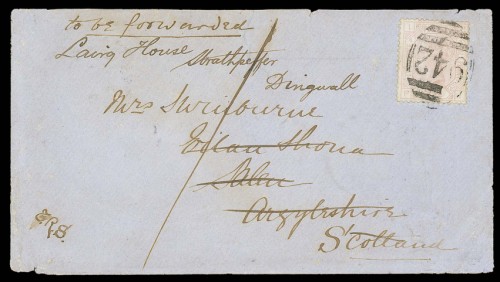 to be forwarded
Lairg House
Strathpeffer
Dingwall
Mrs Swinburne
Eilan Shona
Salen
Argyleshire
Scotland
642